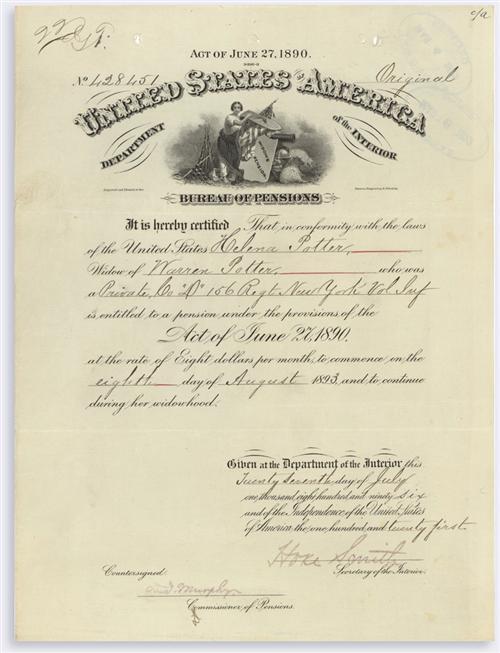 c/a
ACT OF JUNE 27, 1890.
No 428451
Original
UNITED STATES OF AMERICA
DEPARTMENT of the INTERIOR
BUREAU OF PENSIONS
It is hereby certified That in conformity with the laws
of the United States Helena Potter,
Widow of Warren Potter, who was
a Private, Co "D" 156 Regt New York Vol Inf
is entitled to a pension under the provisions of the
Act of June 27, 1890.
at the rate of Eight dollars per month, to commence on the
eighth day of August 1893, and to continue
during her widowhood.
Given at the Department of the Interior this
Twenty seventh day of July
one thousand eight hundred and ninety six
and of the Independence of the United States
of America the one hundred and twenty first.
Hoke Smith
Secretary of the Interior.
Countersigned.
Murphy
Commissioner of Pensions.